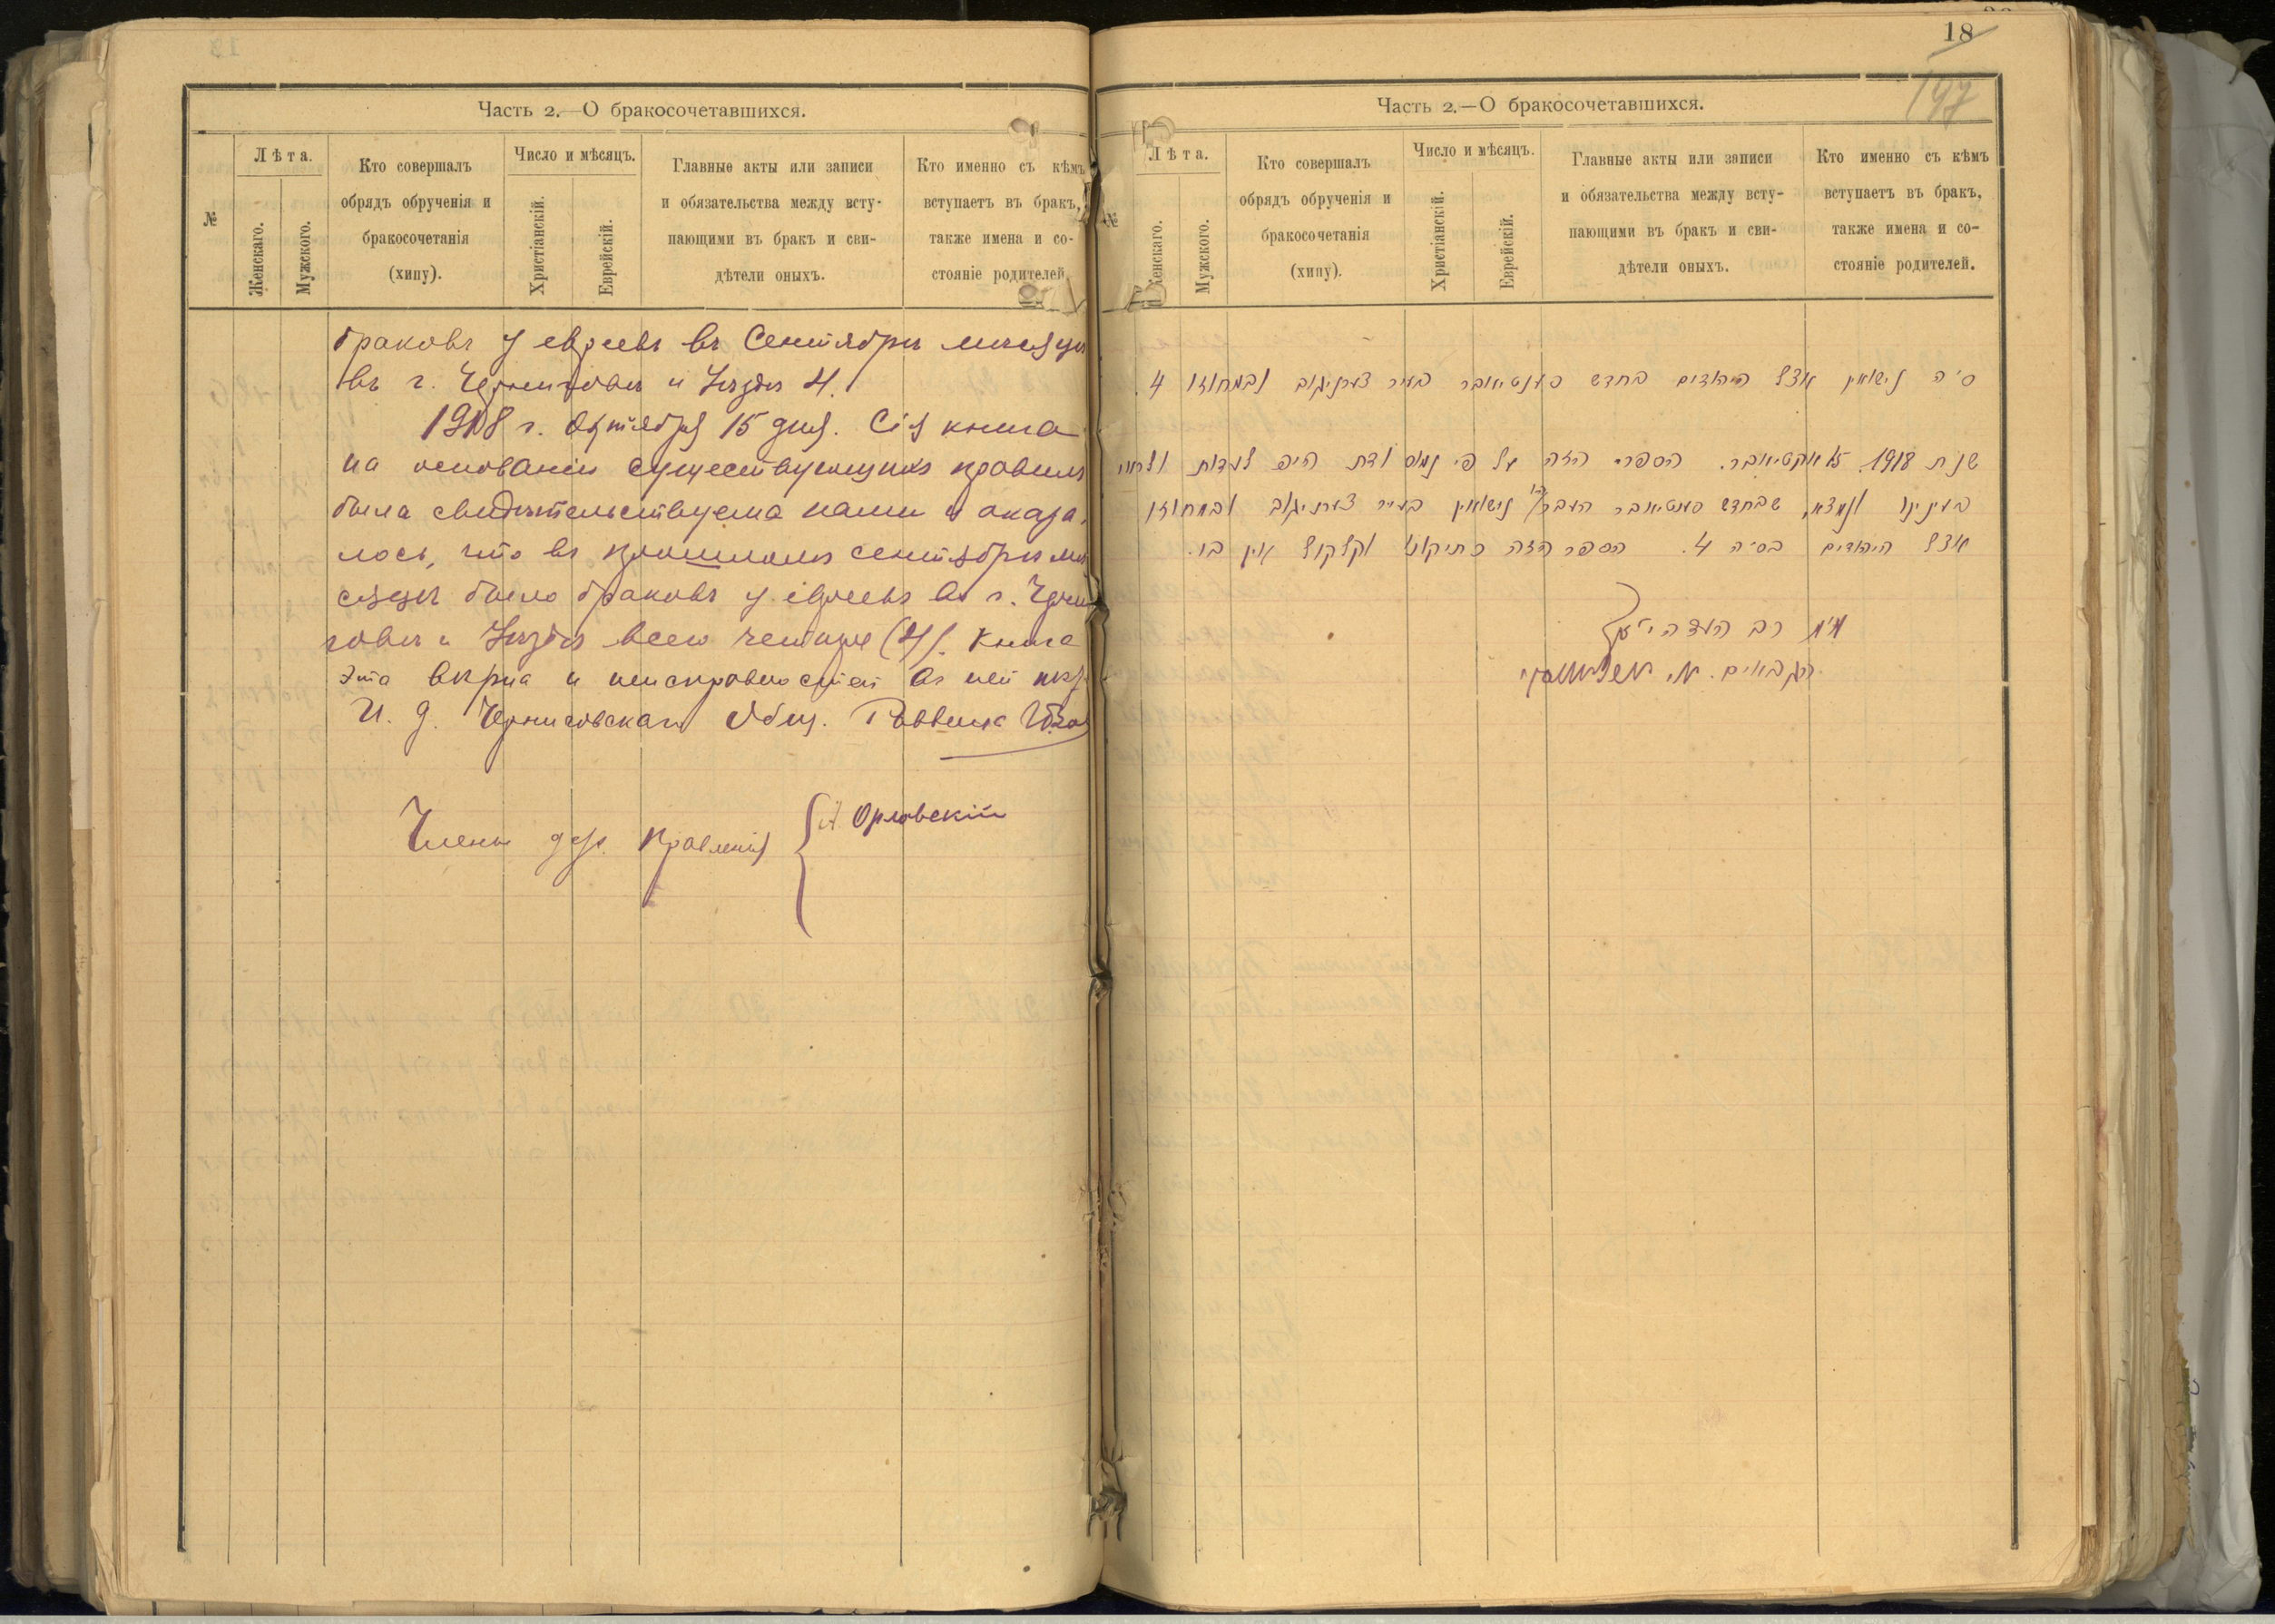 Часть 2.—О бракосочетавшихся.
№
Лѣта.
Женскаго.
Мужскаго.
Кто совершалъ
обрядъ обрученія и
бракосочетанія
(хипу).
Число и мѣсяцъ.
Христіанскій.
Еврейскій.
Главные акты или записи
и обязательства между всту-
пающими въ бракъ и сви-
дѣтели оныхъ.
Кто именно съ кѣмъ
вступаетъ въ бракъ,
также имена и со-
стояніе родителей
браковъ у евреевъ въ Сентябрѣ мѣсяцѣ
въ г. Черниговѣ и Уѣздѣ 4.
1918 г. Октября 15 дня. Сія книга
на основаніи существующихъ правилъ
была свидѣтельствуема нами и оказа-
лось, что въ прошломъ сентябрѣ мѣ
сяцѣ было браковъ у евреевъ въ г. Черни
говѣ и Уѣздѣ всего четыре (4). Книга
эта вѣрна и неисправностей въ ней нѣтъ
И. д. Черниговскаго Общ. Раввина
Члены дух. Правленія
А. Орловскій
18
197
Часть 2.—О бракосочетавшихся.
№
Лѣта.
Женскаго.
Мужскаго.
Кто совершалъ
обрядъ обрученія и
бракосочетанія
(хипу).
Число и мѣсяцъ.
Христіанскій.
Еврейскій.
Главные акты или записи
и обязательства между всту-
пающими въ бракъ и сви-
дѣтели оныхъ.
Кто именно съ кѣмъ
вступаетъ въ бракъ,
также имена и со-
стояніе родителей.
ס״ה נישואין אצל היהודים בחדש סענטיאבר בעיר צערניגוב ובמחוזו 4.
שנת 1918 15 אקטיאבר. הספר הזה על פי נמוס ודת
בעינינו ונמצא, שבחדש סענטיאבר העבר נישואין בעיר צערניגוב ובמחוזו
אצל היהודים בס״ה 4. הספר הזה כתיקונו וקלקול אין בו.
מ״מ רב העדה
הגבאים. מ.